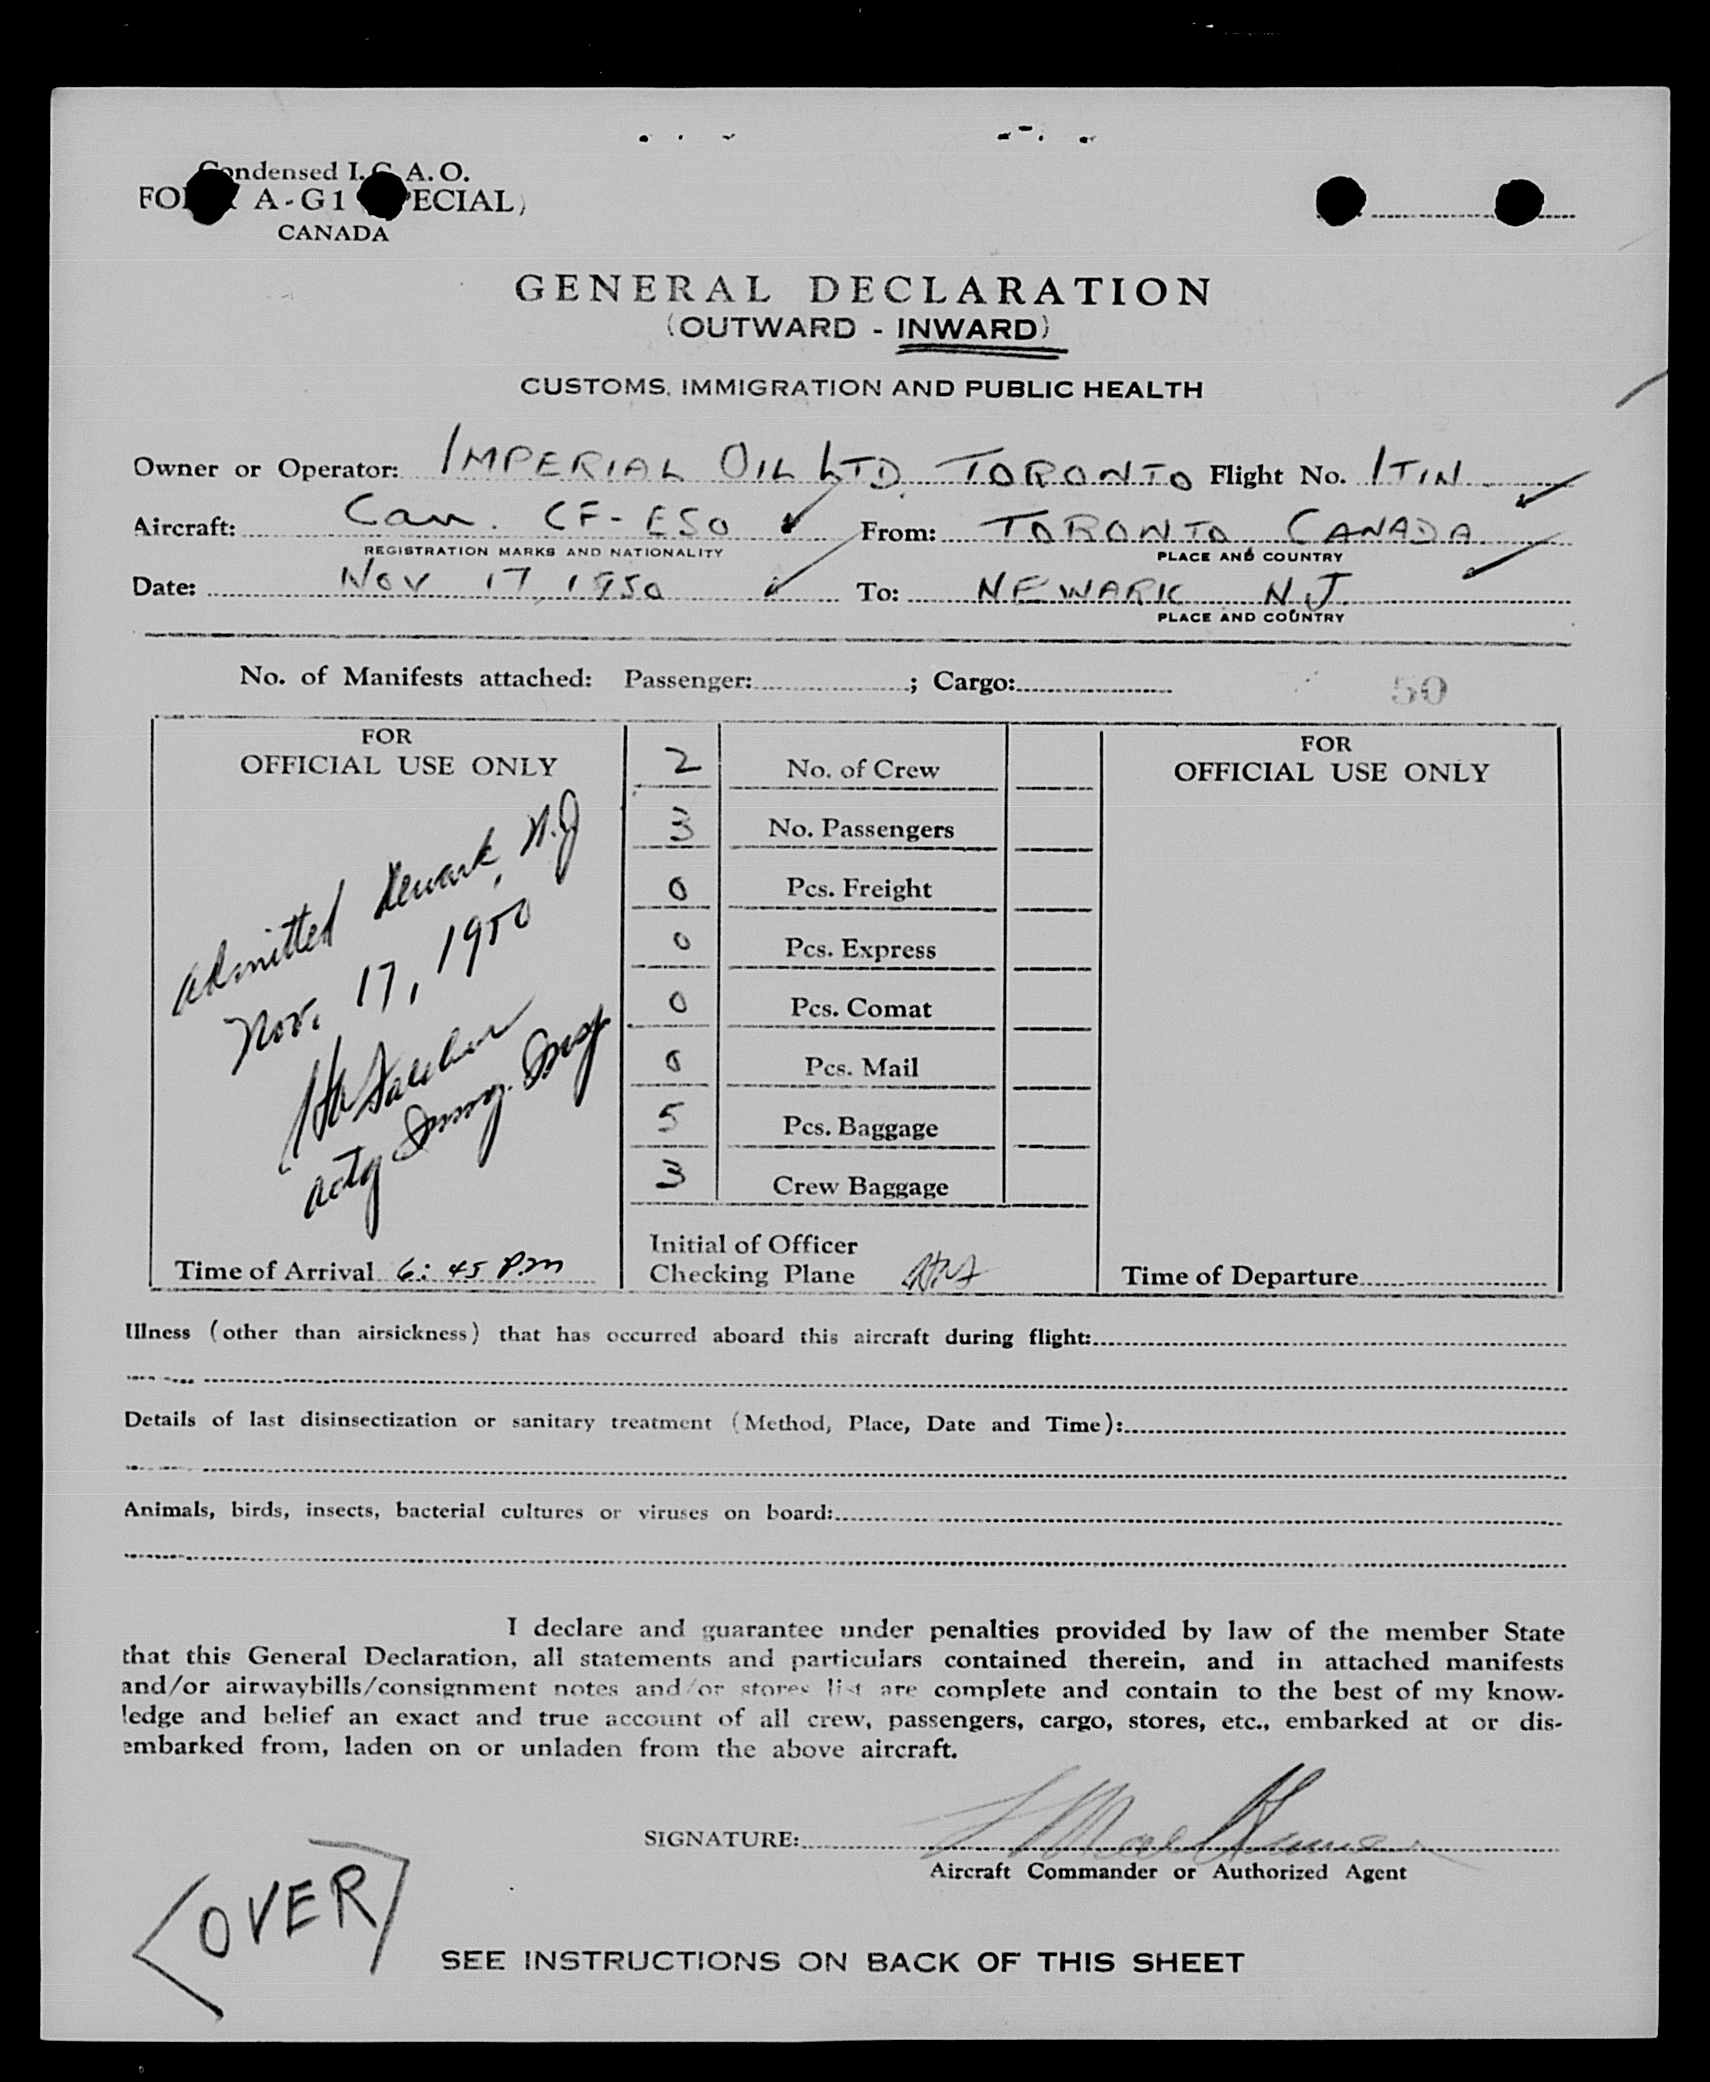 Condensed I.C.A.O.
FORM A-G1 (SPECIAL)
CANADA
GENERAL DECLARATION
(OUTWARD - INWARD)
CUSTOMS, IMMIGRATION AND PUBLIC HEALTH
Owner or Operator: IMPERIAL OIL LTD. TORONTO Flight No. ITIN
Aircraft: Can. CF-ESO From: TORONTO CANADA
REGISTRATION MARKS AND NATIONALITY PLACE AND COUNTRY
Date: NOV 17, 1950 To: NEWARK N.J.
PLACE AND COUNTRY
No. of Manifests attached: Passenger: ; Cargo: 50
FOR
OFFICIAL USE ONLY
admitted Newark, N.J
Nov. 17, 1950
actg Immig. Insp
Time of Arrival 6:45 P.m
2 No. of Crew
3 No. Passengers
0 Pcs. Freight
0 Pcs. Express
0 Pcs. Comat
0 Pcs. Mail
5 Pcs. Baggage
3 Crew Baggage
Initial of Officer
Checking Plane
FOR
OFFICIAL USE ONLY
Time of Departure
Illness (other than airsickness) that has occurred aboard this aircraft during flight:
Details of last disinsectization or sanitary treatment (Method, Place, Date and Time):
Animals, birds, insects, bacterial cultures or viruses on board:
I declare and guarantee under penalties provided by law of the member State
that this General Declaration, all statements and particulars contained therein, and in attached manifests
and/or airwaybills/consignment notes and/or stores list are complete and contain to the best of my know-
ledge and belief an exact and true account of all crew, passengers, cargo, stores, etc., embarked at or dis-
embarked from, laden on or unladen from the above aircraft.
SIGNATURE:
Aircraft Commander or Authorized Agent
OVER
SEE INSTRUCTIONS ON BACK OF THIS SHEET